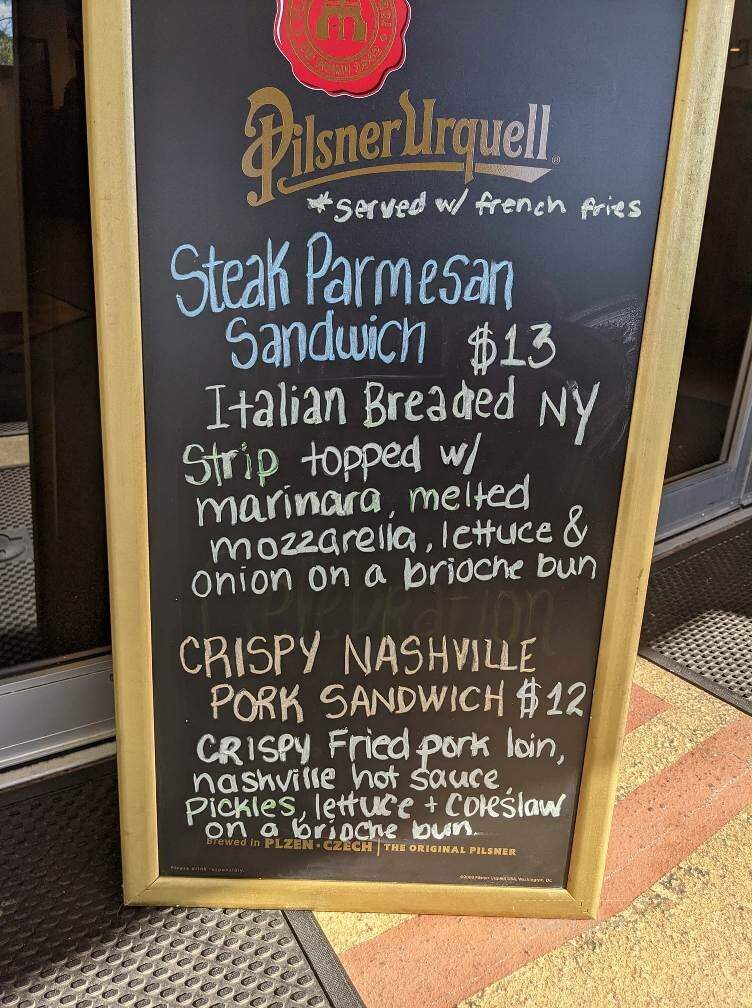 Pilsner Urquell
*Served w/ french fries
Steak Parmesan
Sandwich $13
Italian Breaded NY
Strip topped w/
marinara, melted
mozzarella, lettuce &
onion on a brioche bun
CRISPY NASHVILLE
PORK SANDWICH $12
CRISPY Fried pork loin,
nashville hot sauce,
Pickles, lettuce + Coleslaw
on a brioche bun.
Brewed in PLZEN - CZECH | THE ORIGINAL PILSNER
Please drink responsibly.